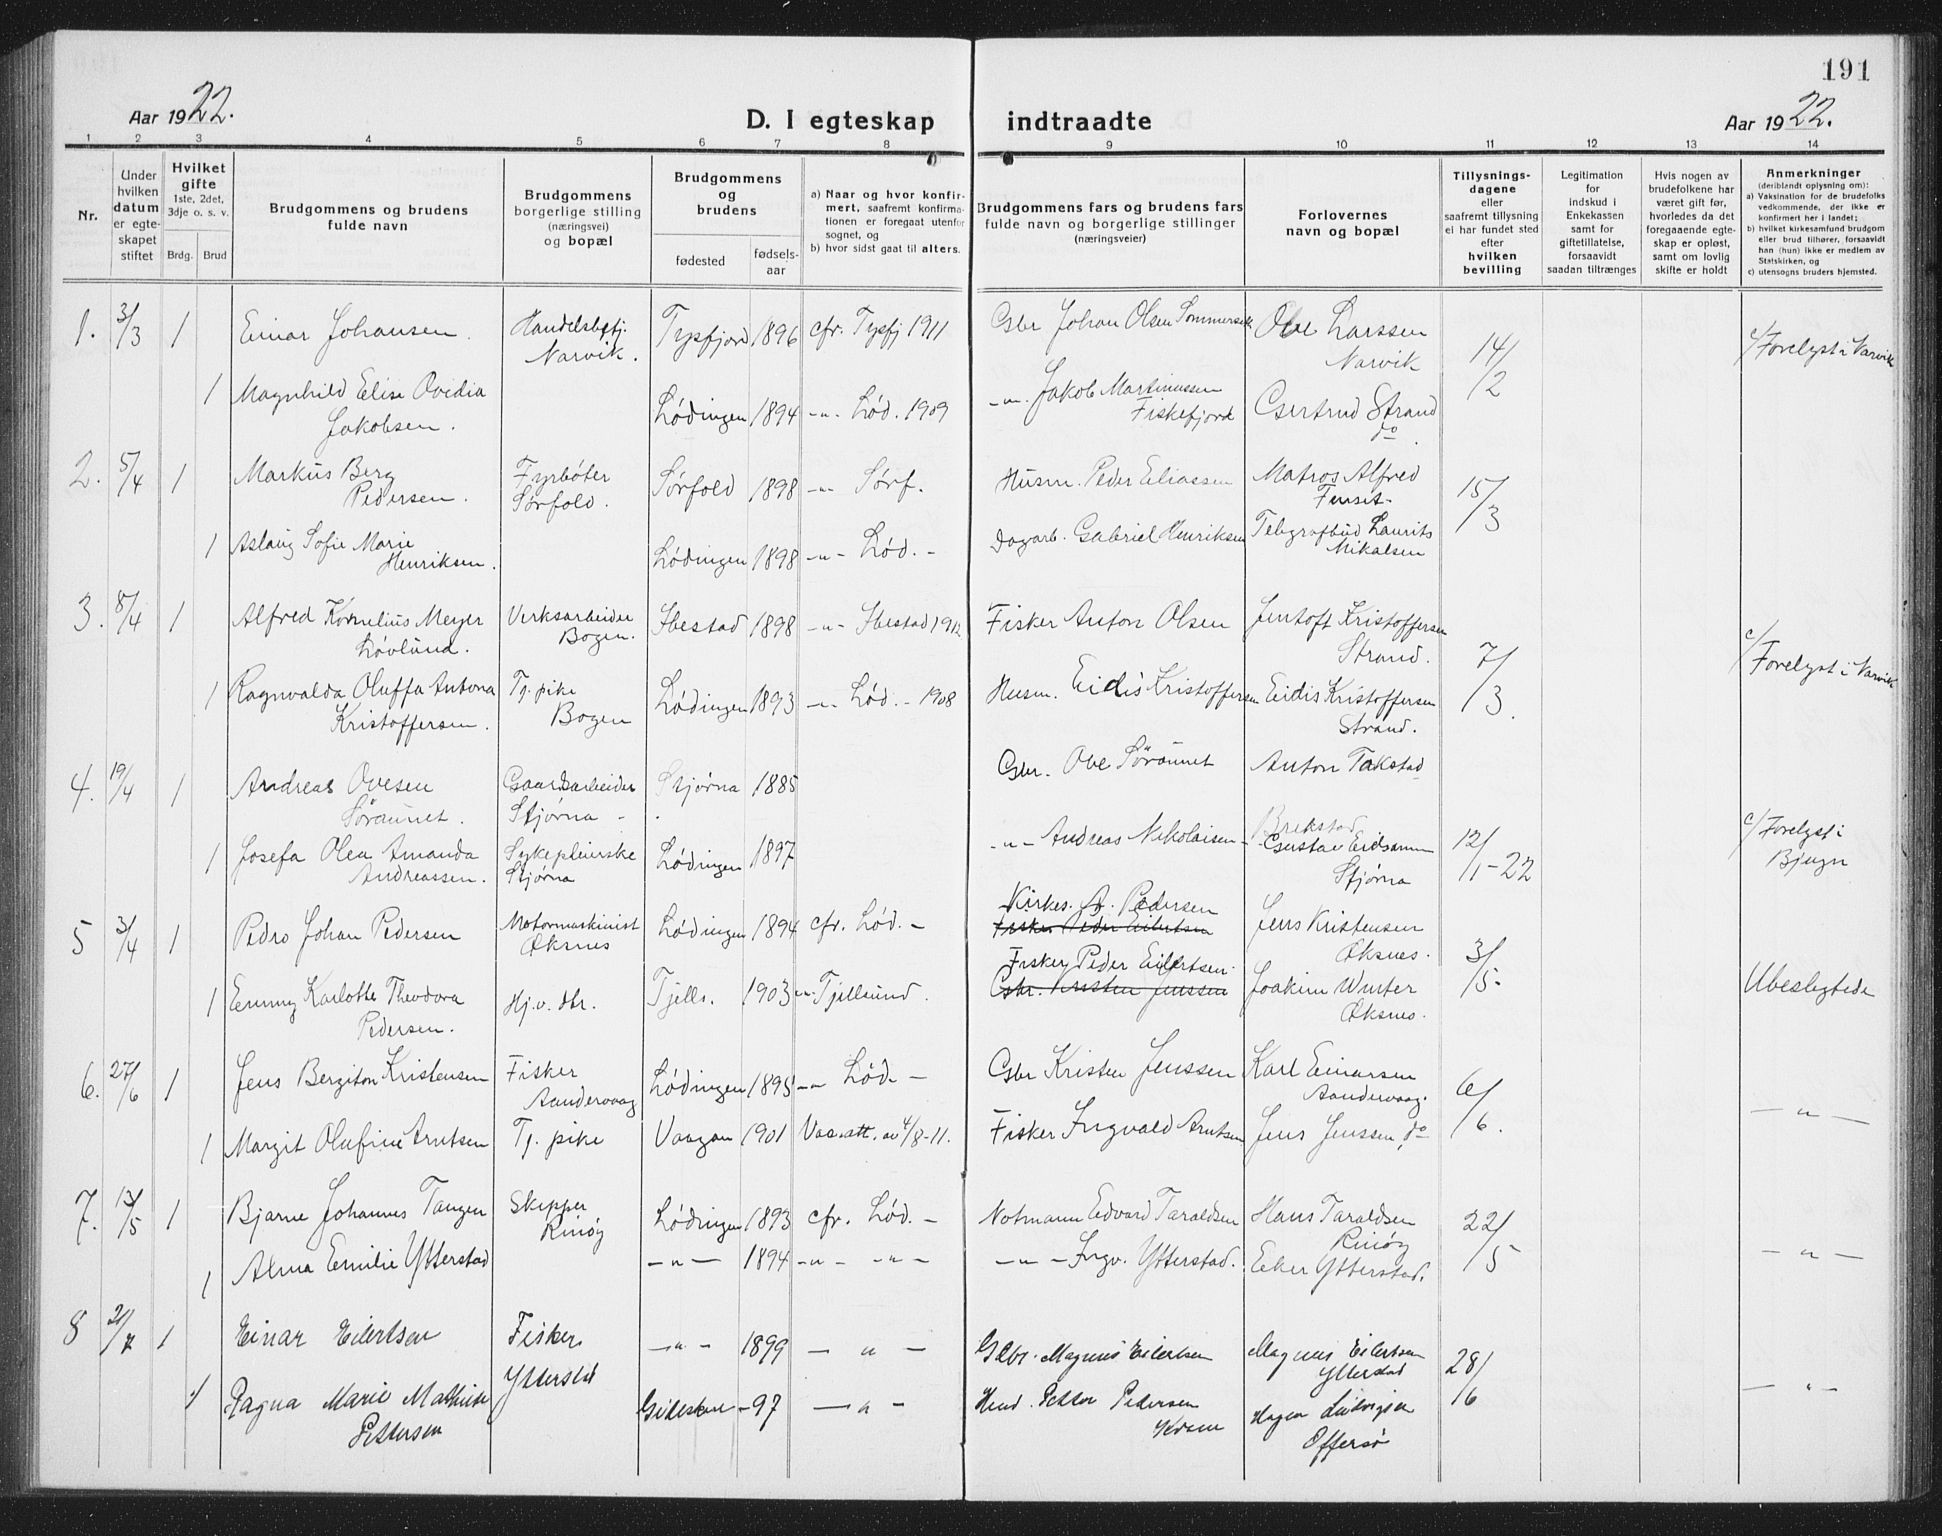 191
Aar 1922.
D. I egteskap indtraadte
Aar 1922.
1 2 3 4 5 6 7 8 9 10 11 12 13 14
Nr.
Under
hvilken
datum
er egte-
skapet
stiftet
Hvilket
gifte
1ste, 2det,
3dje o. s. v.
Brdg. Brud
Brudgommens og brudens
fulde navn
Brudgommens
borgerlige stilling
(næringsvei)
og bopæl
Brudgommens
og
brudens
fødested
fødsels-
aar
a) Naar og hvor konfir-
mert, saafremt konfirma-
tionen er foregaat utenfor
sognet, og
b) hvor sidst gaat til alters.
Brudgommens fars og brudens fars
fulde navn og borgerlige stillinger
(næringsveier)
Forlovernes
navn og bopæl
Tillysnings-
dagene
eller
saafremt tillysning
ei har fundet sted
efter
hvilken
bevilling
Legitimation
for
indskud i
Enkekassen
samt for
giftetillatelse,
forsaavidt
saadan tiltrænges
Hvis nogen av
brudefolkene har
været gift før,
hvorledes da det
foregaaende egte-
skap er opløst,
samt om lovlig
skifte er holdt
Anmerkninger
(deriblandt oplysning om):
a) Vaksination for de brudefolks
vedkommende, der ikke er
konfirmert her i landet;
b) hvilket kirkesamfund brudgom
eller brud tilhører, forsaavidt
han (hun) ikke er medlem av
Statskirken, og
c) utensogns bruders hjemsted.
1. 3/3 1 Einar Johansen. Handelsbetj. Narvik. Tysfjord 1896 cfr. Tysfj 1911 Gbr Johan Olsen Ole Larssen Narvik 14/2 c/ Forelyst i Narvik
1 Magnhild Elise Ovidia Jakobsen. Lødingen 1894 -"- Lød. 1909 -"- Jakob Martinussen Fiskefjord Gjertrud Strand do.
2. 5/4 1 Markus Berg Pedersen. Fyrbøter Sørfold. Sørfold 1898 -"- Sørf. Husm. Peder Eliassen Matros Alfred 15/3
1 Aslaug Sofie Marie Henriksen. Lødingen 1898 -"- Lød. - Dagarb. Gabriel Henriksen Telegrafbud Laurits Mikalsen
3. 8/4 1 Alfred Kornelius Meyer Løvlund. Verksarbeider Bogen. Ibestad 1898 -"- Ibestad 1912 Fisker Anton Olsen Jentoft Kristoffersen Strand. 7/3. c/ Forelyst i Narvik
1 Ragnvalda Oluffa Antona Kristoffersen. Tj. pike Bogen Lødingen 1893 -"- Lød. - 1908 Husm. Eidis Kristoffersen Eidis Kristoffersen Strand.
4. 19/4 1 Andreas Ovesen Søraunet. Gaardsarbeider Stjørna - Stjørna 1885 Gbr. Ove Søraunet Anton Takstad Brekstad 12/1-22 c/ Forelyst i Bjugn
1 Josefa Olea Amanda Andreassen. Sykepleierske Stjørna Lødingen 1897 -"- Andreas Nikolaisen - Gustav Eidsaunn Stjørna
5 3/4 1 Pedro Johan Pedersen Motormaskinist Øksnes Lødingen 1894 cfr. Lød. - Kirkes. A. Pedersen Fisker Peder Eilertsen Jens Kristensen Øksnes. 3/5- Ubeslegtede
1 Emmy Karlotte Theodora Pedersen. Hj.v. dtr. Tjells. 1903 -"- Tjellsund. Fisker Peder Eilertsen. Gbr. Kristen Jenssen Joakim Winter Øksnes.
6. 27/6 1 Jens Bergiton Kristensen Fisker Aandervaag Lødingen 1895 -"- Lød. - Gbr Kristen Jenssen Karl Einarsen Aandervaag. 6/6. -"-
1 Margit Olufine Arntsen Tj. pike Vaagan 1901 Vac.att. av 4/8-11. Fisker Ingvald Arntsen Jens Jenssen, do
7. 13/5 1 Bjarne Johannes Tangen Skipper Rinøy Lødingen 1893 cfr. Lød. - Notmann Edvard Taraldsen Hans Taraldsen Rinøy 22/5 -"-
1 Alma Emilie Ytterstad -"- 1894 -"- -"- -"- Ingv. Ytterstad. Eker Ytterstad.
8 1 Einar Eilertsen Fisker Ytterstad -"- 1899 -"- Gdbr. Magnus Eilertsen Magnus Eilertsen Ytterstad 28/6 -"-
1 Ragna Marie Mathilde Pettersen -97 -"- Pedersen Hagen Ludvigsen Offersø